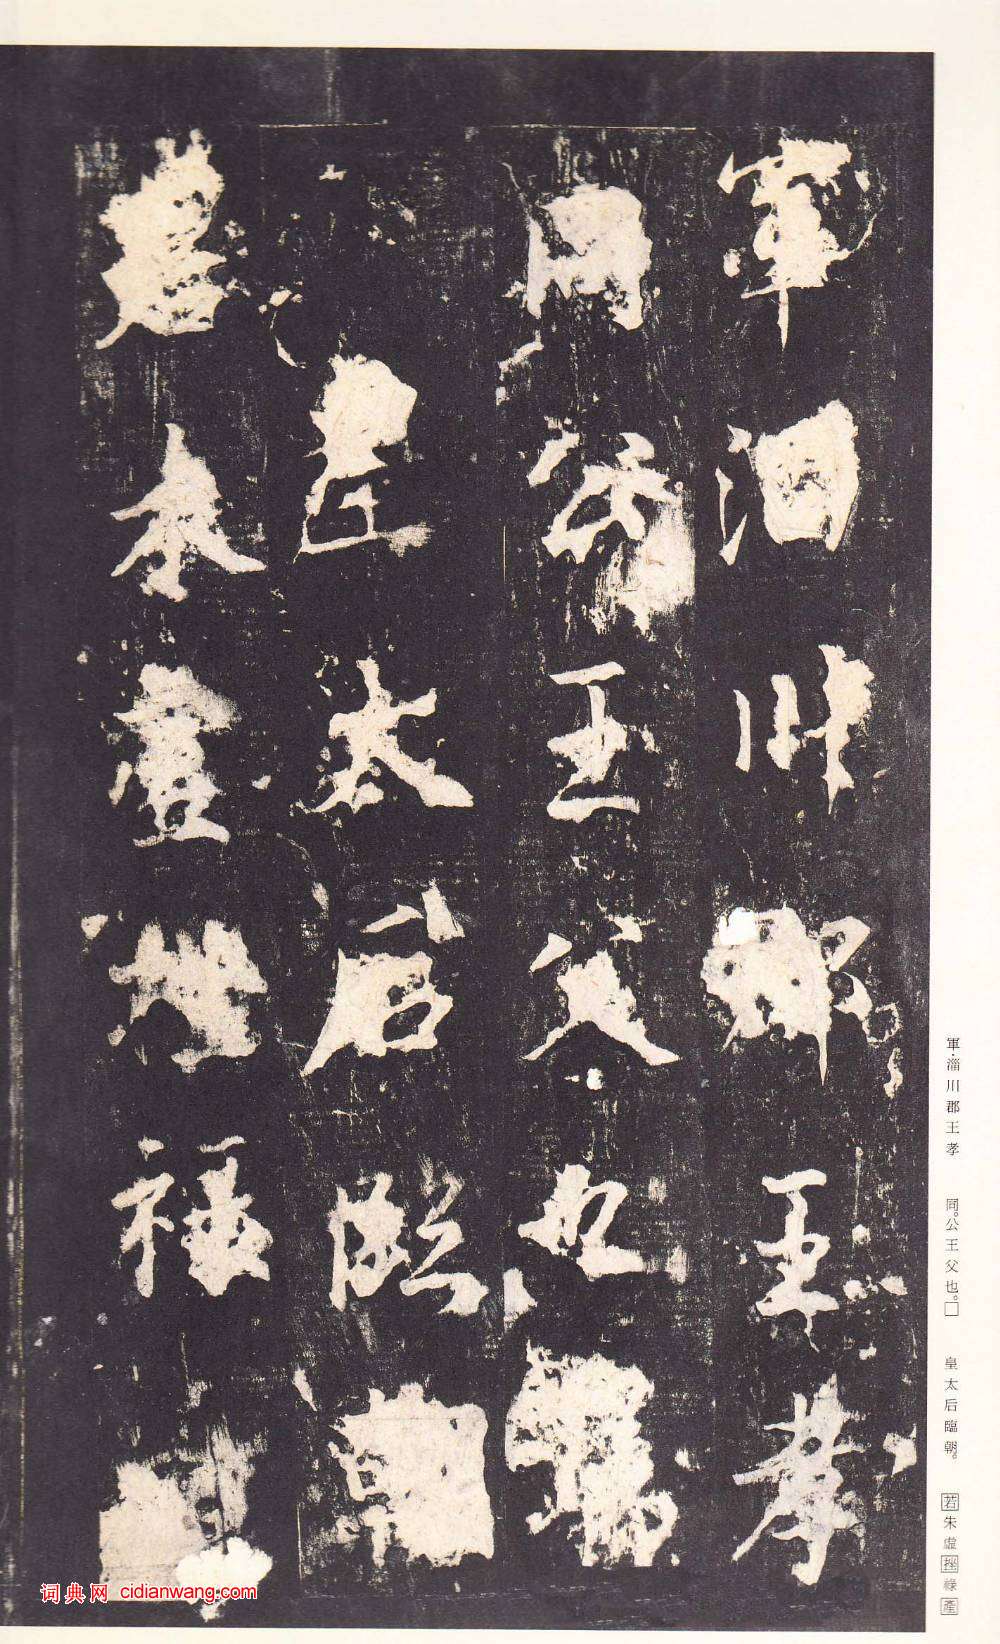 軍淄川郡王孝
同公王父也
皇太后臨朝
若朱虚挫祿產
軍·淄川郡王孝
同。公王父也。□
皇太后臨朝。
若朱虚挫祿產
词典网 cidianwang.com